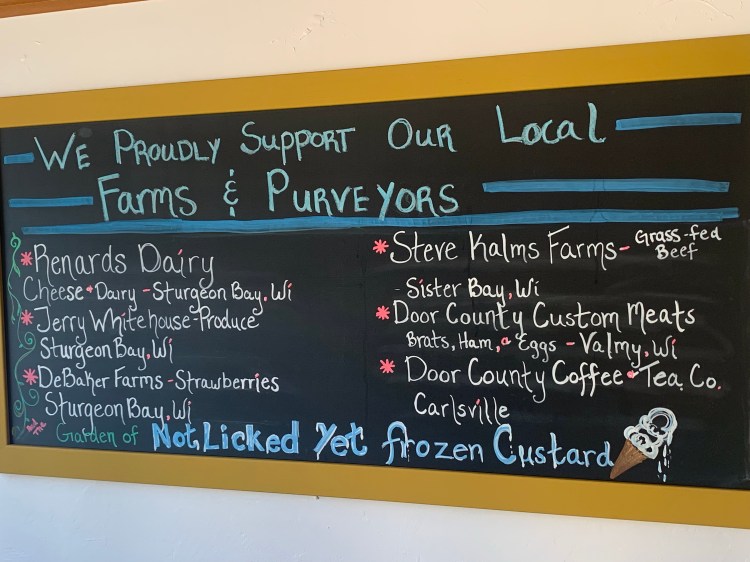 We Proudly Support Our Local
Farms & Purveyors
*Renards Dairy
Cheese & Dairy - Sturgeon Bay, Wi
*Jerry Whitehouse-Produce
Sturgeon Bay, Wi
*DeBaker Farms - Strawberries
Sturgeon Bay, Wi
*Steve Kalms Farms - Grass-fed
Beef
- Sister Bay, Wi
*Door County Custom Meats
Brats, Ham, & Eggs - Valmy, Wi
*Door County Coffee & Tea Co.
Carlsville
Garden of Not Licked Yet frozen Custard